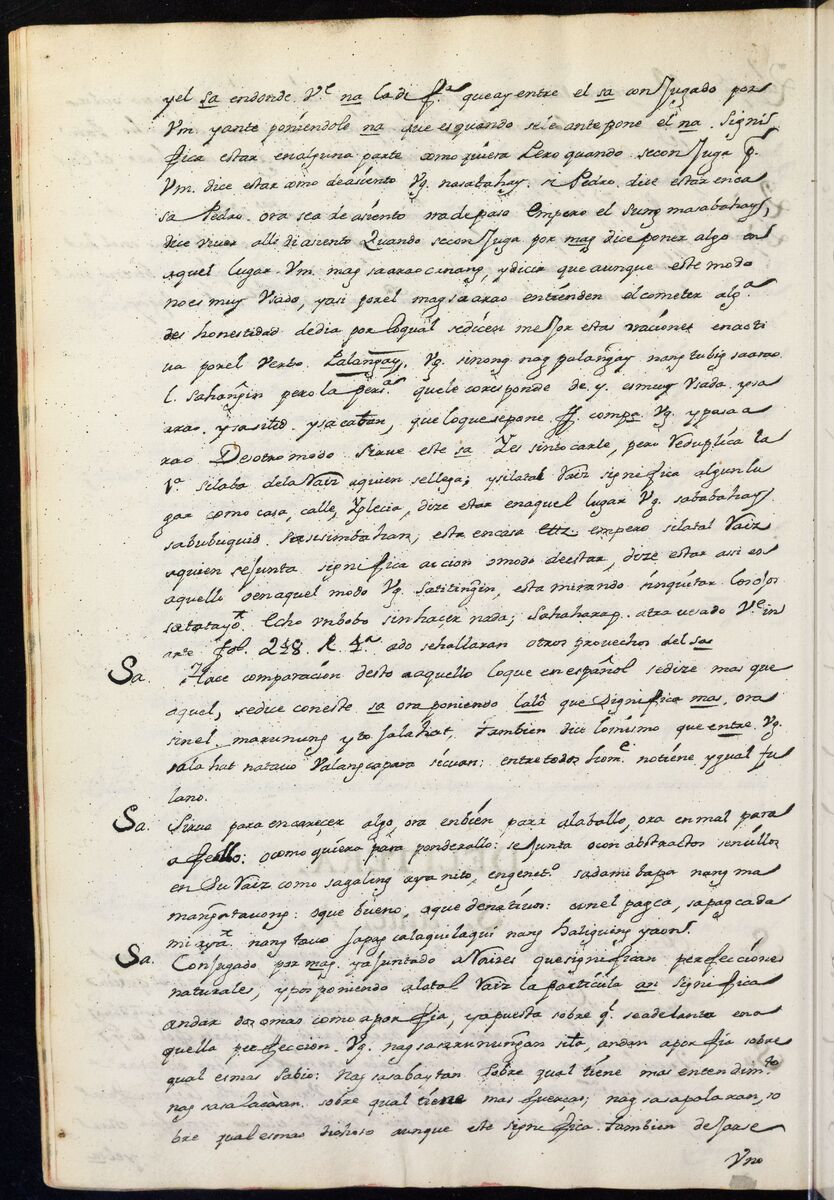 y el sa endonde. V.e na la dif.a que ay entre el sa conJugado por
Vm. y ante poniendole na que es quando se le antepone el na. signi
fica estar en alguna parte como quiera Pero quando se conJuga p.
Vm. dice estar como de asiento Vg. nasabahay. si Pedro. dice estar en ca
sa Pedro. ora sea de asiento ora de paso Empero el sung masabahay,
dice viuir alli di asiento Quando se conJuga por mag dice poner algo en
aquel lugar. Vm. mag sa arao cunang, y dicir que aunque este modo
no es muy Vsado, y asi por el mag sa arao entienden el cometer alg.a
des honestidad de dia por lo qual se dicen meJor estas raciones en acti
ua por el Verbo. Lalangay, Vg. sinong nag palangay nang tubig sa arao
l. sa hangin pero la pers.a que le coresponde de y. es muy Vsada. y sa
arao. y sa itid. y sa catan, que lo que se pone compa Vg. y pasa a
rao De otro modo sirue este sa Y es sin tocarle, pero reduplica la
1.a silaba de la Vaiz a quien se llega; y si la tal Vaiz significa algun lu
gar como casa, calle, Yglecia, dize estar en aquel lugar Vg. sababahay.
sabubuquid. sasisimbahan; esta en casa ettz empero si la tal Vaiz
a quien se Junta significa accion o modo de estar, dize estar asi en
aquello o en aquel modo Vg. satitingin, esta mirando sin quitar los oJos
satatayo. Echo vn bobo sin hacer nada; sahaharap. atra uesado V.e in
arte fol. 218. R. 4.a ado se hallaran otros prouechos del sa
Sa. Hace comparacion desto a aquello lo que en español se dize mas que
aquel, se dice con este sa ora poniendo lalo que significa mas, ora
sin el. marunung yto sa lahat. Tambien dice lo mismo que entre. Vg.
sa la hat na tauo Valang capara si cuan: entre todos hom.e no tiene ygual fu
lano.
Sa. Sirue para encareçer algo, ora en bien para alaballo, ora en mal para
afeallo: o como quiera para ponderallo: se Junta con abstractos sencillos
en su Vaiz como sa galing aya nito, en genet.o sa dami baga nang ma
manga tauong: o que bueno, o que de natiuos: con el pagca, sapagcada
mi aya nang tauo sapag calaquilaqui nang haliguing yaon.
Sa. Conjugado por mag, y aJuntado a Vaizes que significan perfecciones
naturales, y pos poniendo a la tal Vaiz la particula an significa
andar dos o mas como a por fia, y apuesta sobre q. se adelanta en a
quella perfeccion. Vg. nag sasarunungan sila, andan a por fia sobre
qual es mas sabio: nag sasabaytan sobre qual tiene mas entendim.to
nag sasalacasan. sobre qual tiene mas fuercas; nag sasapalaran, so
bre qual es mas dichoso aunque este significa. tambien deJarse
Vno